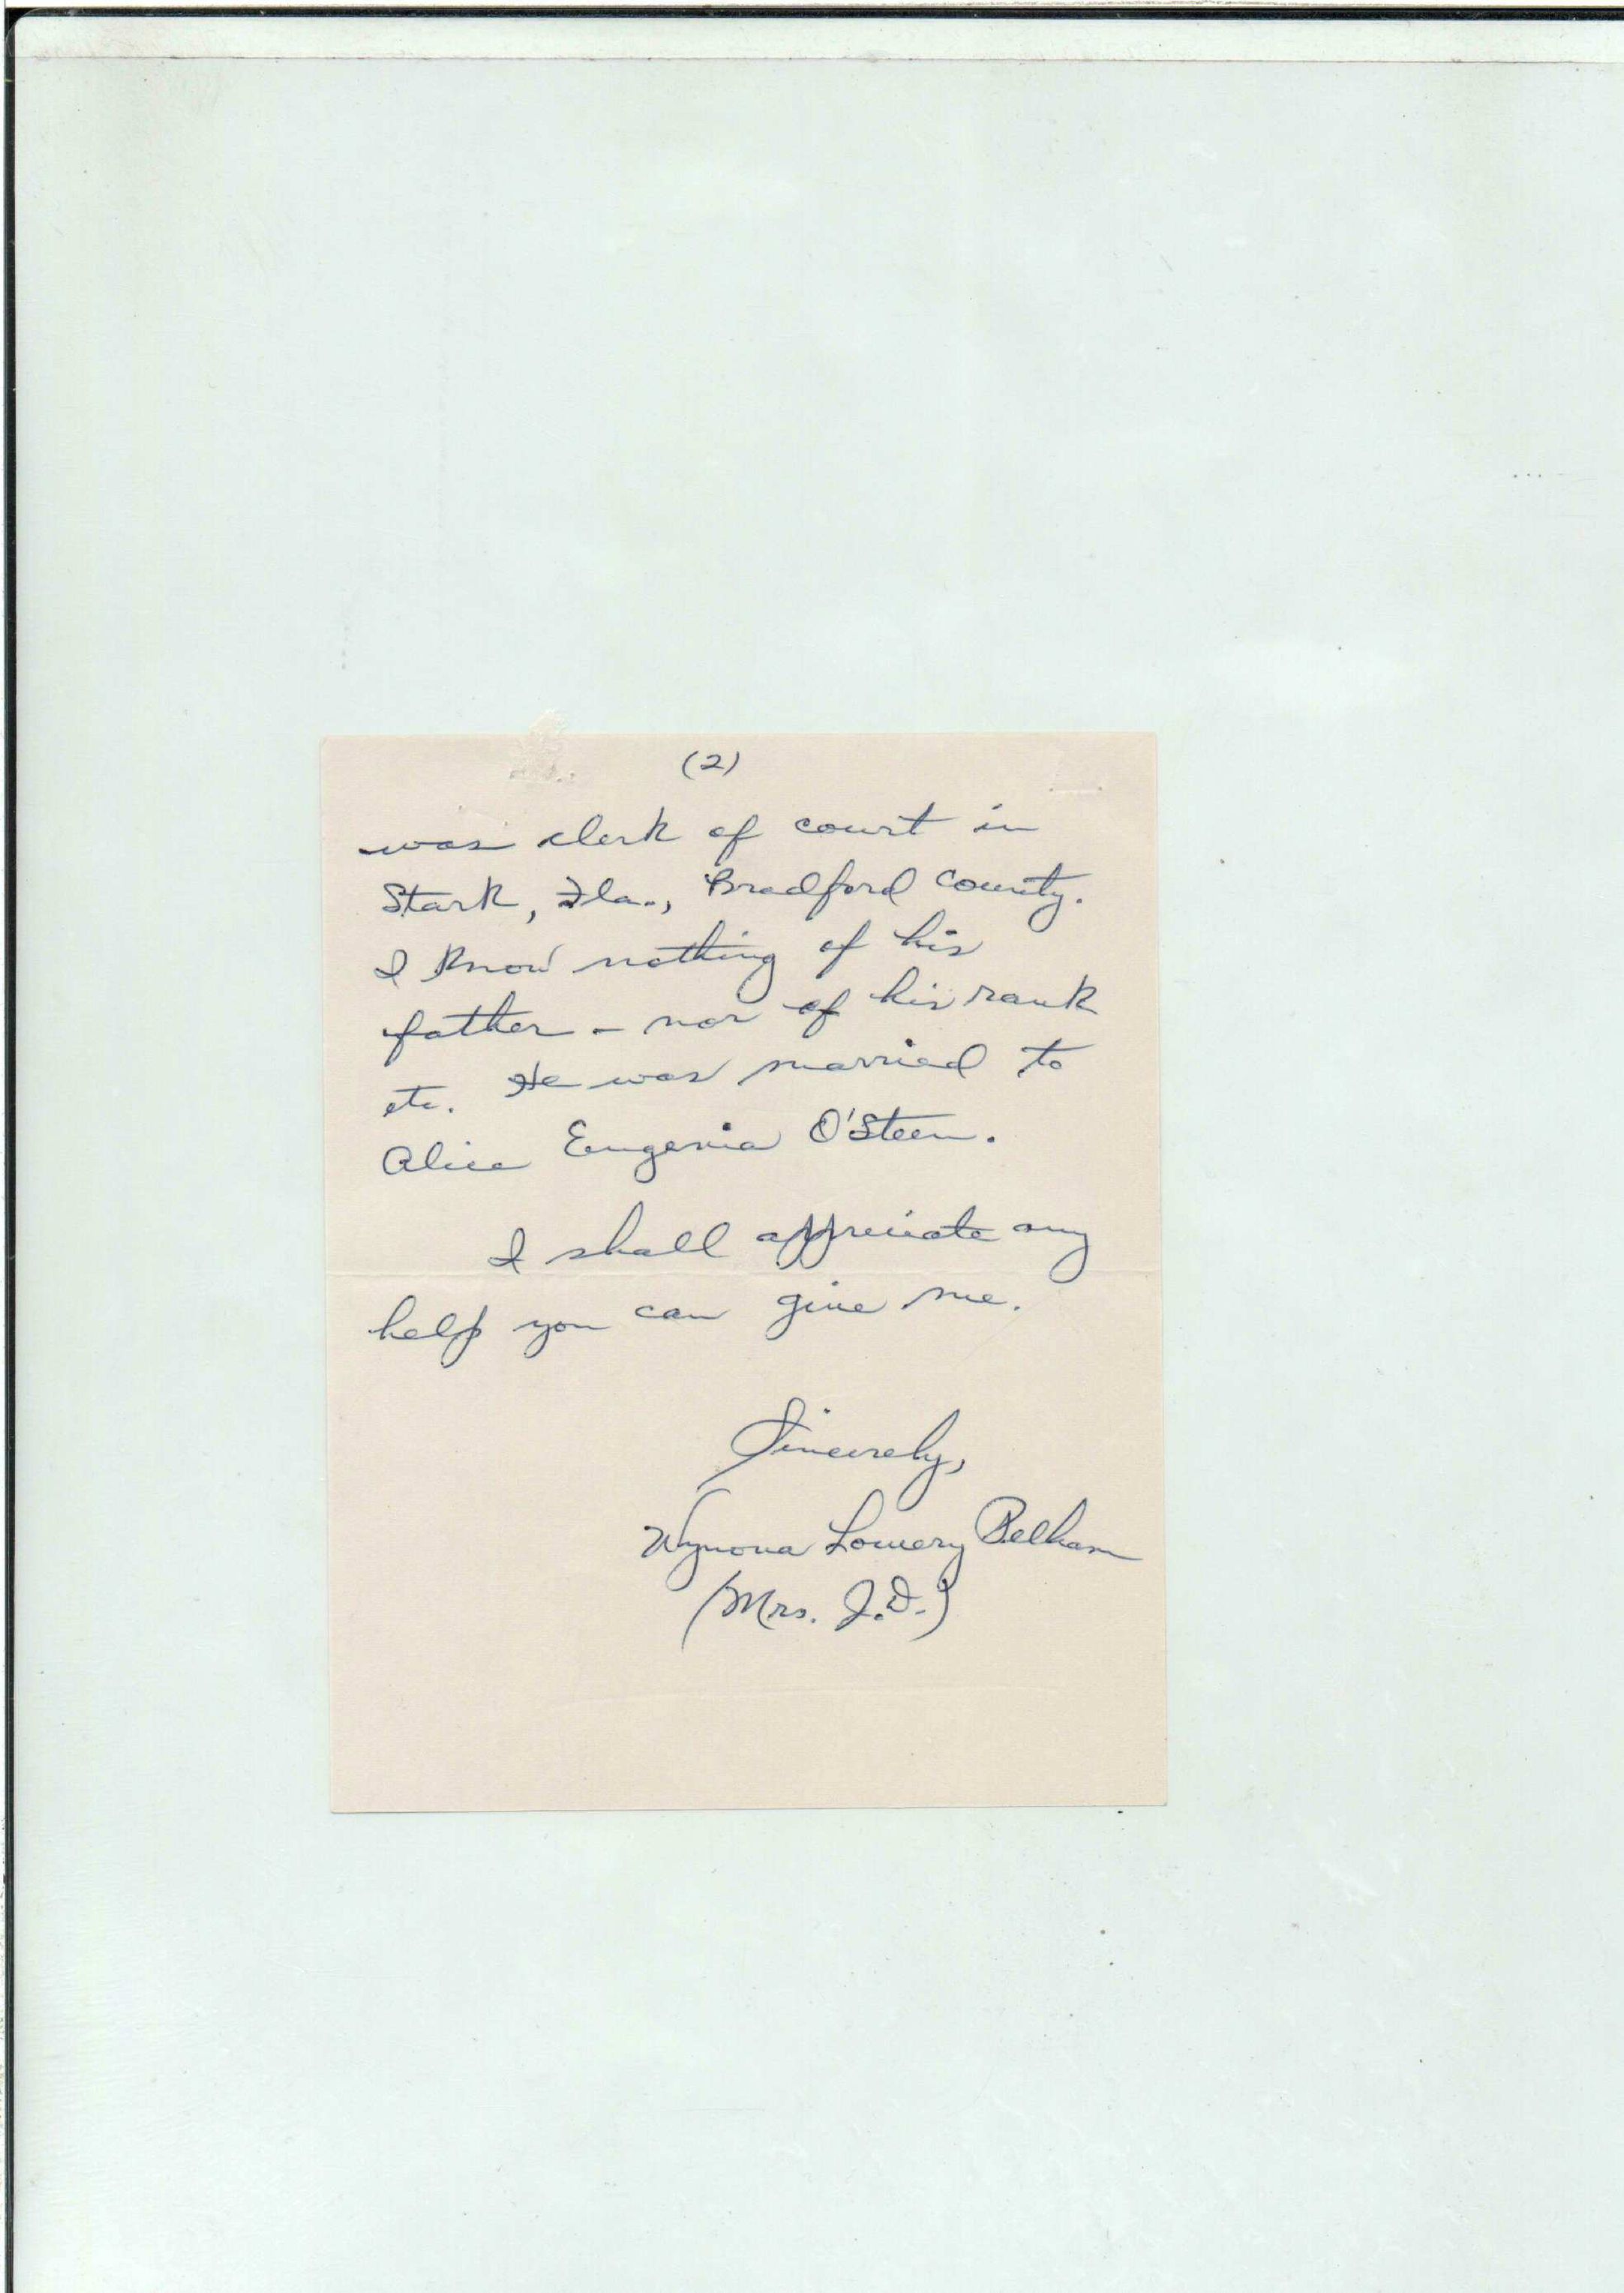 (2)
was clerk of court in
Stark, Fla., Bradford County.
I know nothing of his
father - nor of his rank
etc. He was married to
Alice Eugenia O'Steen.
I shall appreciate any
help you can give me.
Sincerely,
Wynona Lowery Pelham
(Mrs. J.D.)